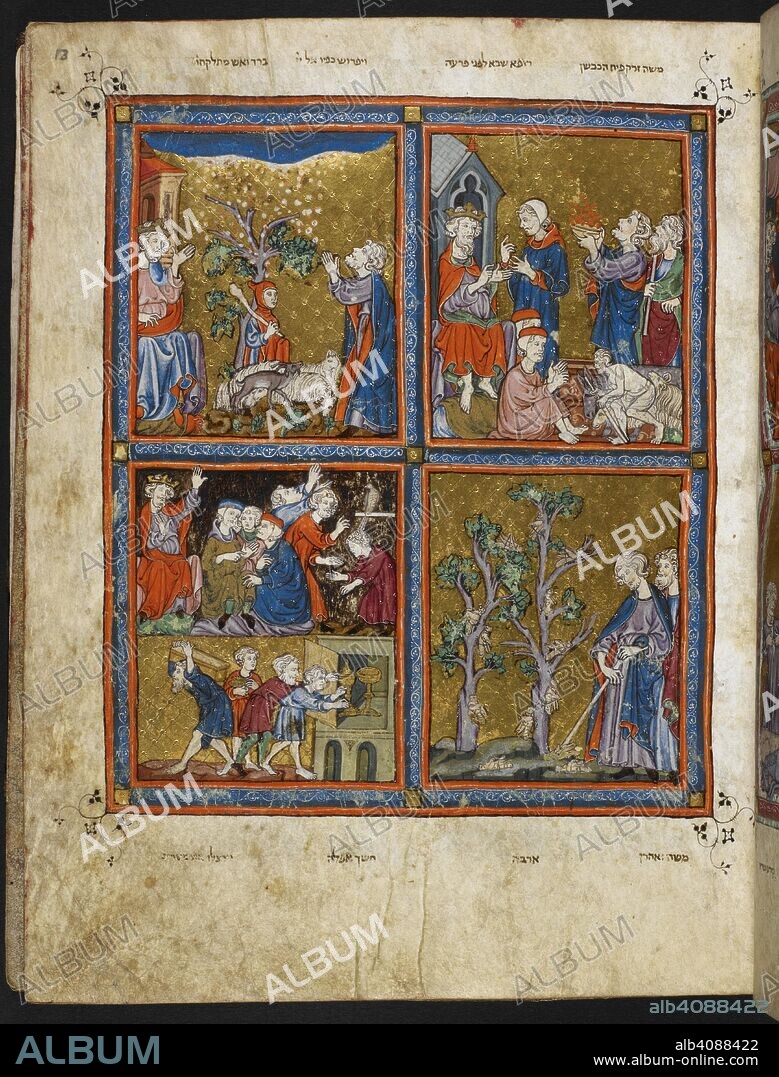 13
משה זרק פיח הכבשן
רופא שבא לפני פרעה
ויפרוש כפיו אל יי
ברד ואש מתלקחת
משה ואהרן
ארבה
חשך אפלה
ALBUM
alb4088422
ALBUM
alb4088422
www.album-online.com